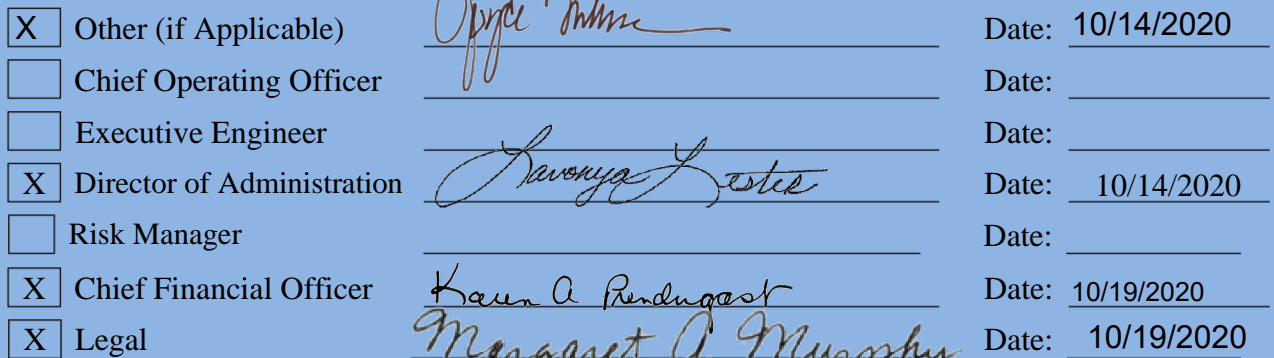 X Other (if Applicable) Date: 10/14/2020
Chief Operating Officer Date:
Executive Engineer Date:
X Director of Administration Lavonya Lester Date: 10/14/2020
Risk Manager Date:
X Chief Financial Officer Karen A Prendergast Date: 10/19/2020
X Legal Margaret A. Murphy Date: 10/19/2020